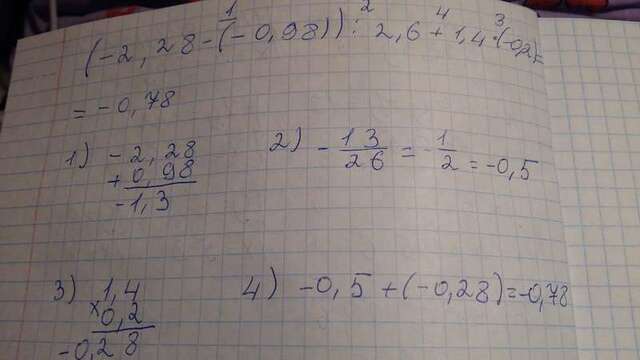 1 2 4 3
(-2,28-(-0,98)):2,6+1,4·(-0,2)=
= -0,78
1) -2,28
+0,98
-1,3
2) -13/26 = -1/2 = -0,5
3) 1,4
×0,2
-0,28
4) -0,5+(-0,28)=-0,78